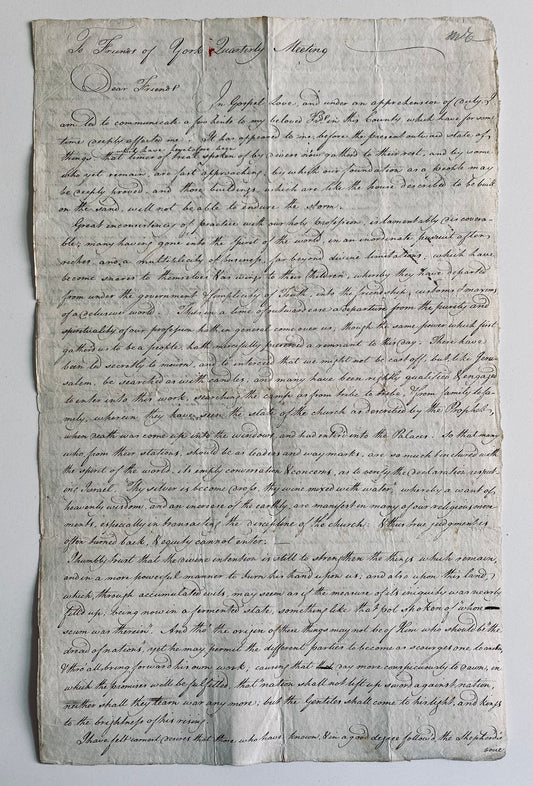 To Friends of York Quarterly Meeting
Dear Friends
In Gospel Love, and under an apprehension of duty, I
am led to communicate a few hints to my beloved Fds in this County, which have for some
time deeply affected me. It has appeared to me, before the present outward state of
things that times of treat spoken of by divers now gathered to their rest, and by some
who yet remain, are fast approaching, by which our foundation as a people may
be deeply proved, and those buildings, which are like the house described to be built
on the sand, will not be able to endure the storm.
Great inconsistency of practice with our holy profession, is lamentably discovera-
ble; many having gone into the spirit of the world, in an inordinate pursuit after
riches and a multiplicity of business, far beyond divine limitations, which have
become snares to themselves & as wings to their Children, whereby they have departed
from under the government & simplicity of Truth, into the friendships, customs & maxims
of a delusive world. Thus in a time of outward ease a departure from the purity and
spirituality of our profession hath in general come over us, though the same power which first
gathered us to be a people, hath mercifully preserved a remnant to this day. These have
been led secretly to mourn, and to intercede that we might not be cast off, but like Jeru-
salem, be searched as with candles, and many have been rightly qualified & engaged
to enter into this work, searching the camp as from tribe to tribe, & from family to fa-
mily, wherein they have seen the state of the church as described by the Prophet,
when death was come up into the windows, and had entered into the Palaces. So that many
who from their stations, should be as leaders and way marks, are so much tinctured with
the spirit of the world, its empty conversation & concerns, as to verify the declaration respect-
ing Israel "Thy silver is become dross, thy wine mixed with water," whereby a want of
heavenly wisdom, and an increase of the earthly, are manifest in many of our religious move-
ments, especially in transacting the discipline of the church; & thus true judgment is
often turned back, & equity cannot enter.
I humbly trust that the divine intention is still to strengthen the things which remain,
and in a more powerful manner to turn his hand upon us, and also upon this land,
which, through accumulated evils, may seem as if the measure of its iniquity was nearly
filled up, being now in a fermented state, something like that "pot spoken of whose
scum was therein". And tho' the origin of these things may not be of Him who should be "the
dread of nations, yet he may permit the different parties to become as scourges one to another,
& thro' all bring forward his own work, causing that day more conspicuously to dawn, in
which the promises will be fulfilled, that "nation shall not lift up sword against nation,
neither shall they learn war any more; but the Gentiles shall come to his light, and Kings
to the brightness of his rising".
I have felt earnest desires that those, who have known, & in a good degree followed the Shepherd's
voice